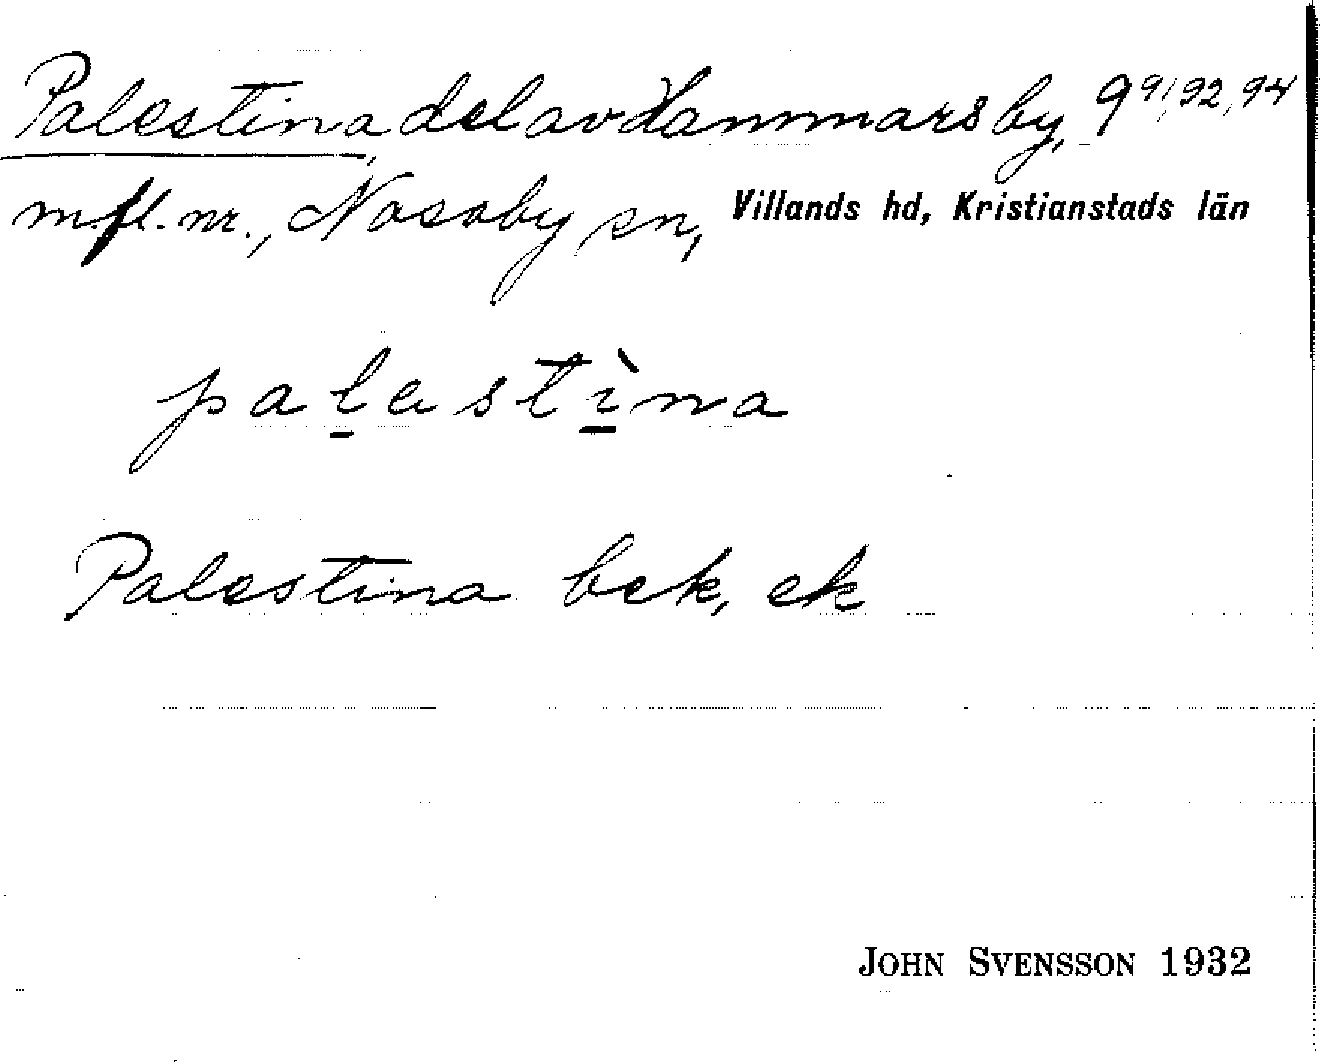 Palestina, del av Hammarsby, 9⁹¹,⁹²,⁹⁴
m.fl. nr., Nosaby sn, Villands hd, Kristianstads län
palestìna
Palestina bek, ek
JOHN SVENSSON 1932